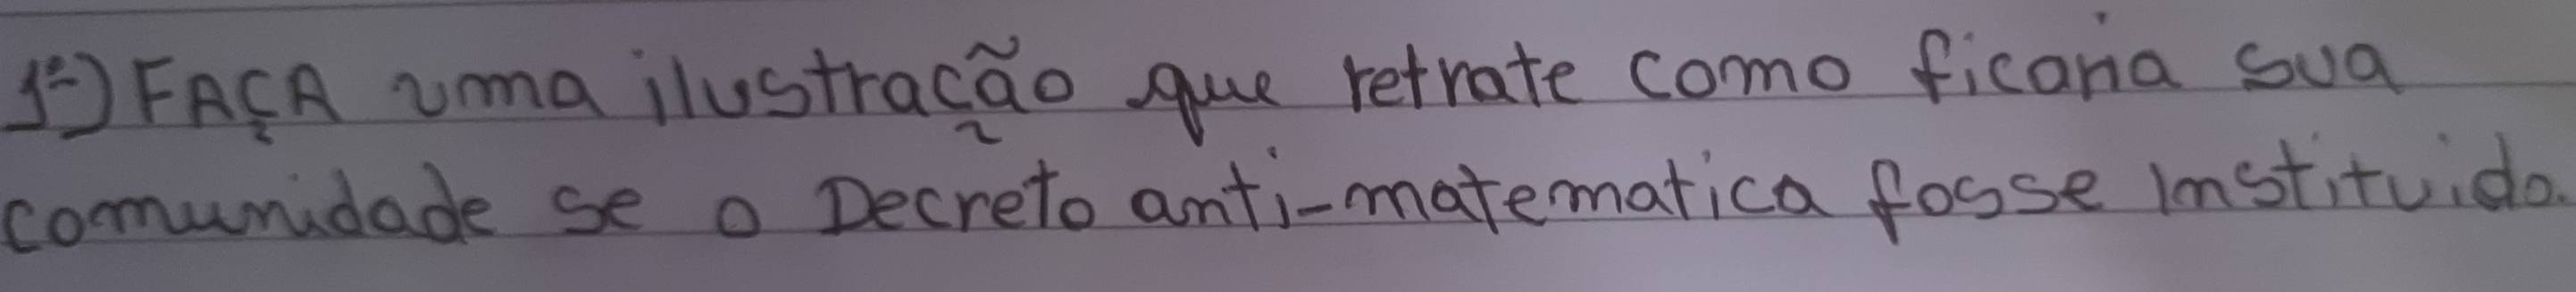 1º) FAÇA uma ilustração que retrate como ficaria sua
comunidade se o Decreto anti-matematica fosse Instituido.